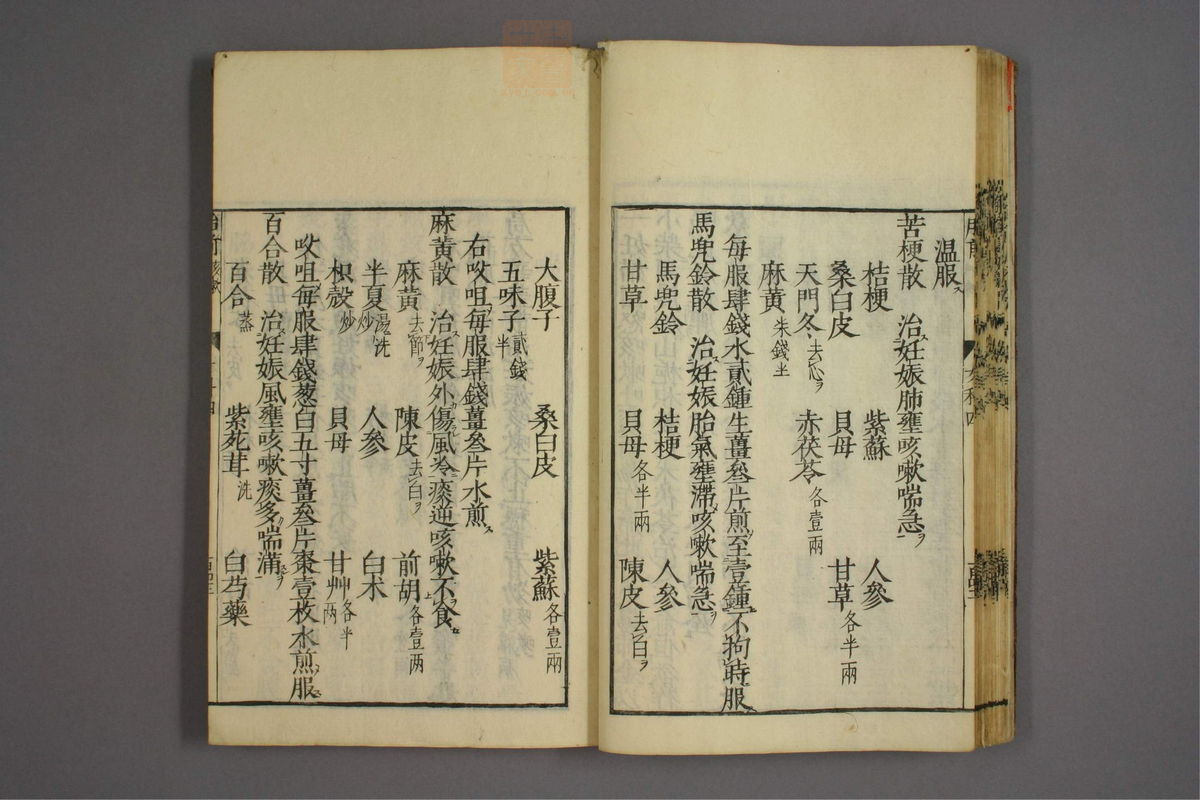 温服ス
苦梗散　治妊娠肺壅咳嗽喘急
桔梗　紫蘇　人參
桑白皮　貝母　甘草各半兩
天門冬去心　赤茯苓各壹兩
麻黄
每服肆錢水貳鍾生薑叄片煎至壹鍾不拘時服
馬兜鈴散　治妊娠胎氣壅滯咳嗽喘急
馬兜鈴　桔梗　人參
甘草　貝母各半兩　陳皮去白
大腹子　桑白皮　紫蘇各壹兩
五味子貳錢半
右㕮咀每服肆錢薑叄片水煎
麻黄散　治妊娠外傷風冷痰逆咳嗽不食
麻黄去節　陳皮去白　前胡各壹两
半夏湯洗炒　人參　白术
枳殼炒　貝母　甘艸各半兩
㕮咀每服肆錢葱白五寸薑叄片棗壹枚水煎服
百合散　治妊娠風壅咳嗽痰多喘滿
百合蒸　紫苑茸洗　白芍藥